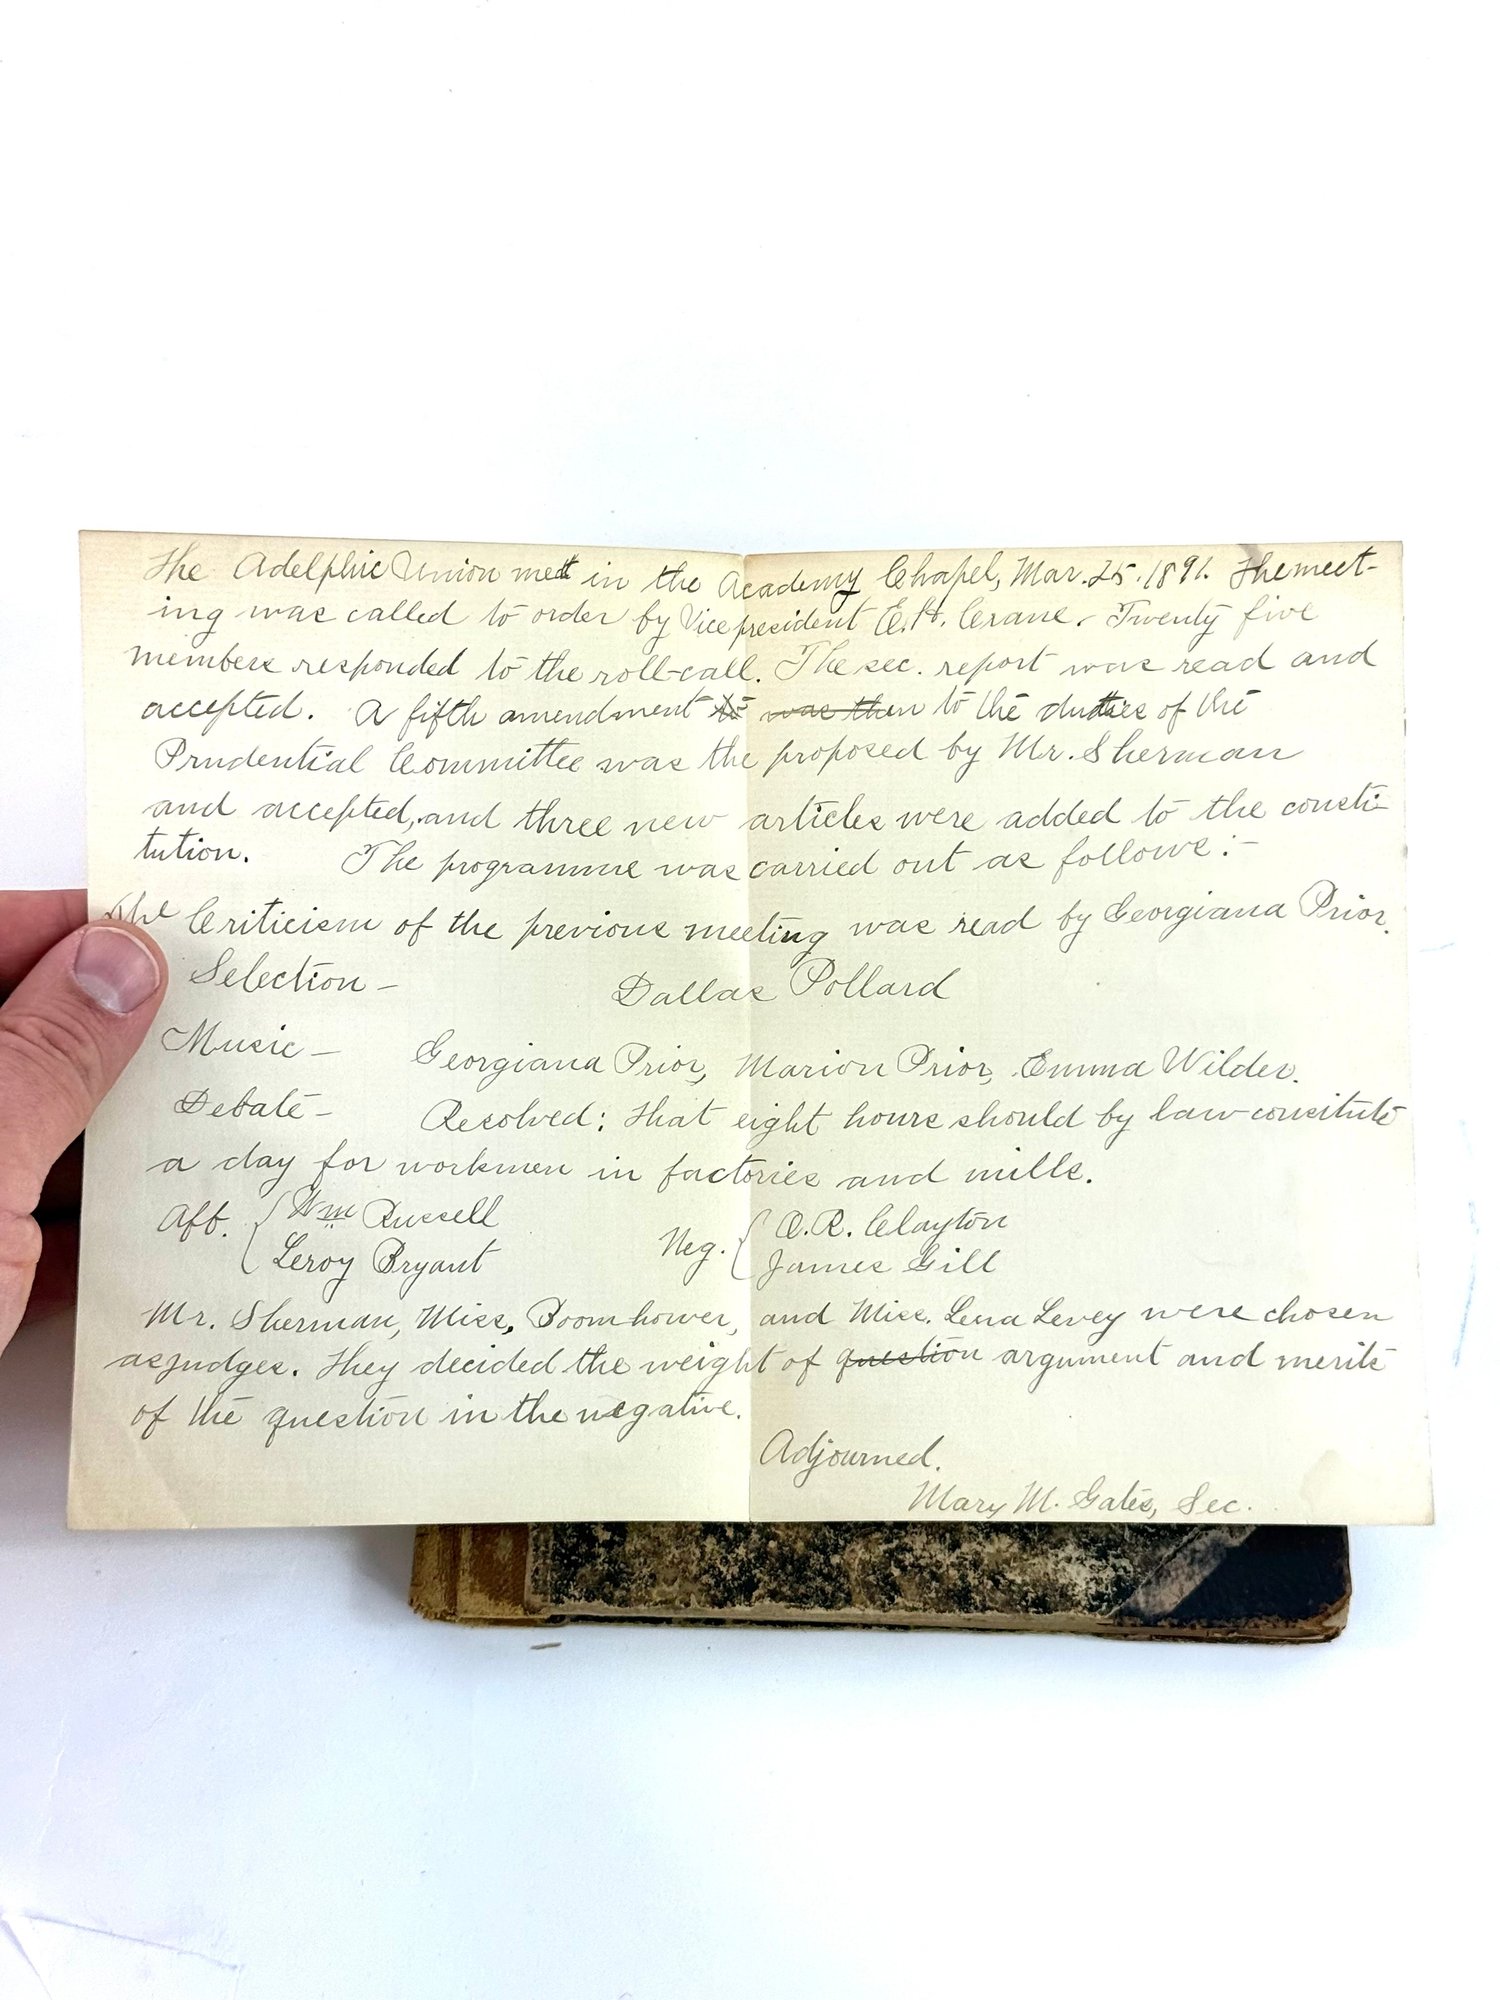 The Adelphic Union met in the Academy Chapel, Mar. 25. 1891. The meet-
ing was called to order by Vice president E. H. Crane. Twenty five
members responded to the roll-call. The sec. report was read and
accepted. A fifth amendment to was then to the duties of the
Prudential Committee was the proposed by Mr. Sherman
and accepted, and three new articles were added to the consti-
tution. The programme was carried out as follows:-
The Criticism of the previous meeting was read by Georgiana Prior.
Selection - Dallas Pollard
Music - Georgiana Prior, Marion Prior, Emma Wilder.
Debate - Resolved: That eight hours should by law consitute
a day for workmen in factories and mills.
Aff. { Wm Russell Neg. { O. R. Clayton
Leroy Bryant James Gill
Mr. Sherman, Miss, Boomhower, and Miss. Lena Levey were chosen
as judges. They decided the weight of question argument and merits
of the question in the negative.
Adjourned.
Mary M. Gates, Sec.